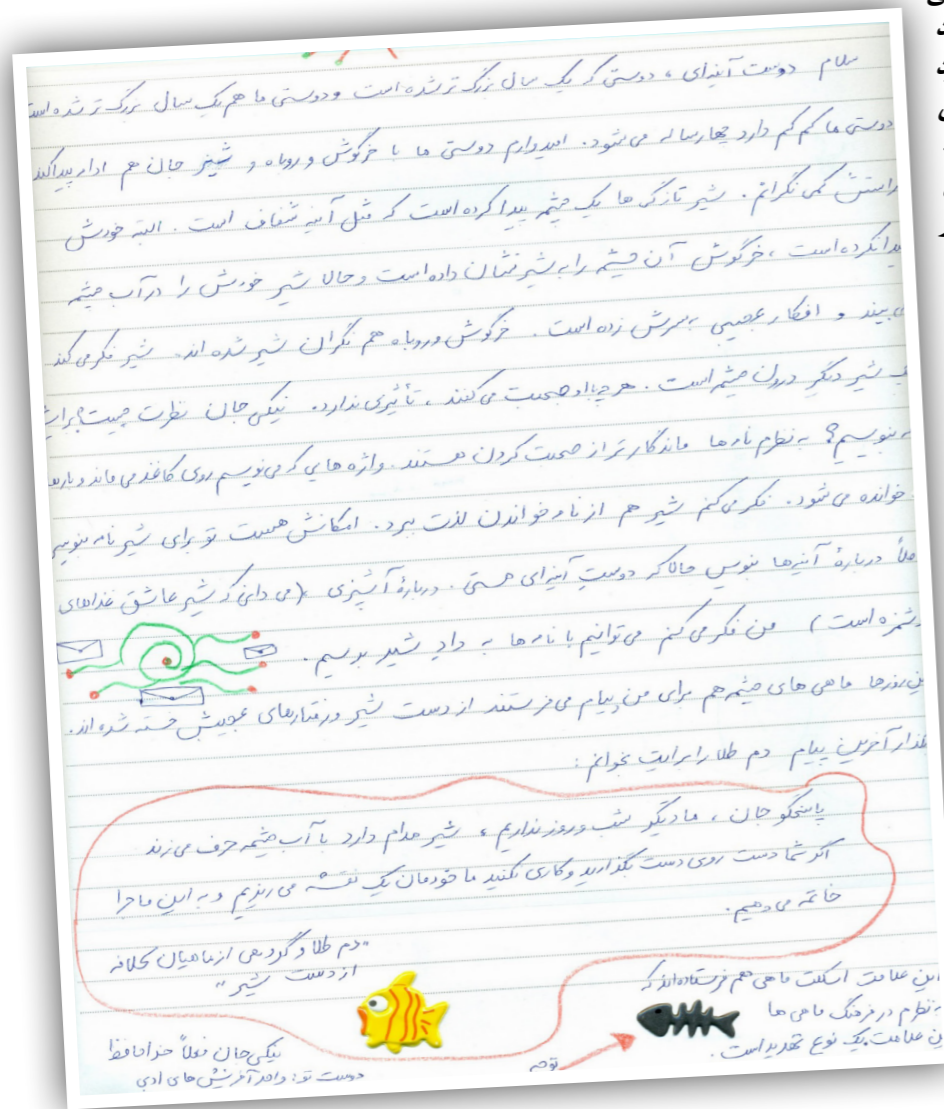 سلام دوست آینه‌ای ، دوستی که یک سال بزرگ تر شده است و دوستی ما هم یک سال بزرگ تر شده است
دوستی ما کم کم دارد چهارساله می شود. امیدوارم دوستی ما با خرگوش و روباه و شیر جان هم ادامه پیدا کند
راستش کمی نگرانم. شیر تازگی ها یک چشمه پیدا کرده است که مثل آینه شفاف است. البته خودش
پیدا نکرده است ، خرگوش آن چشمه را به شیر نشان داده است و حالا شیر خودش را در آب چشمه
می بیند و افکار عجیبی به سرش زده است. خرگوش و روباه هم نگران شیر شده اند. شیر فکر می کند
یک شیر دیگر درون چشمه است. هر چه با او صحبت می کنند ، تأثیری ندارد. نیکی جان نظرت چیست برایش
نامه بنویسیم؟ به نظرم نامه ها ماندگار تر از صحبت کردن هستند. واژه هایی که می نویسم روی کاغذ می ماند و بارها
خوانده می شود. فکر می کنم شیر هم از نامه خواندن لذت ببرد. امکانش هست تو برای شیر نامه بنویسی
مثلاً دربارهٔ آینه‌ها بنویس حالا که دوست آینه‌ای هستی. دربارهٔ آشپزی (می دانی که شیر عاشق غذاهای
خوشمزه است) من فکر می کنم می توانیم با نامه ها به داد شیر برسیم.
این روزها ماهی های چشمه هم برای من پیام می فرستند از دست شیر و رفتارهای عجیبش خسته شده اند.
بگذار آخرین پیام دم طلا را برایت بخوانم :
پاسخگو جان ، ما دیگر شب و روز نداریم ، شیر مدام دارد با آب چشمه حرف می زند
اگر شما دست روی دست بگذارید و کاری نکنید ما خودمان یک نقشه می ریزیم و به این ماجرا
خاتمه می دهیم.
"دم طلا و گروهی از ماهیان کلافه
از دست شیر"
این علامت اسکلت ماهی هم فرستاده اند که
به نظرم در فرهنگ ماهی ها
این علامت یک نوع تهدید است.
توجه
نیکی جان فعلاً خداحافظ
دوست تو: واحد آفرینش های ادبی